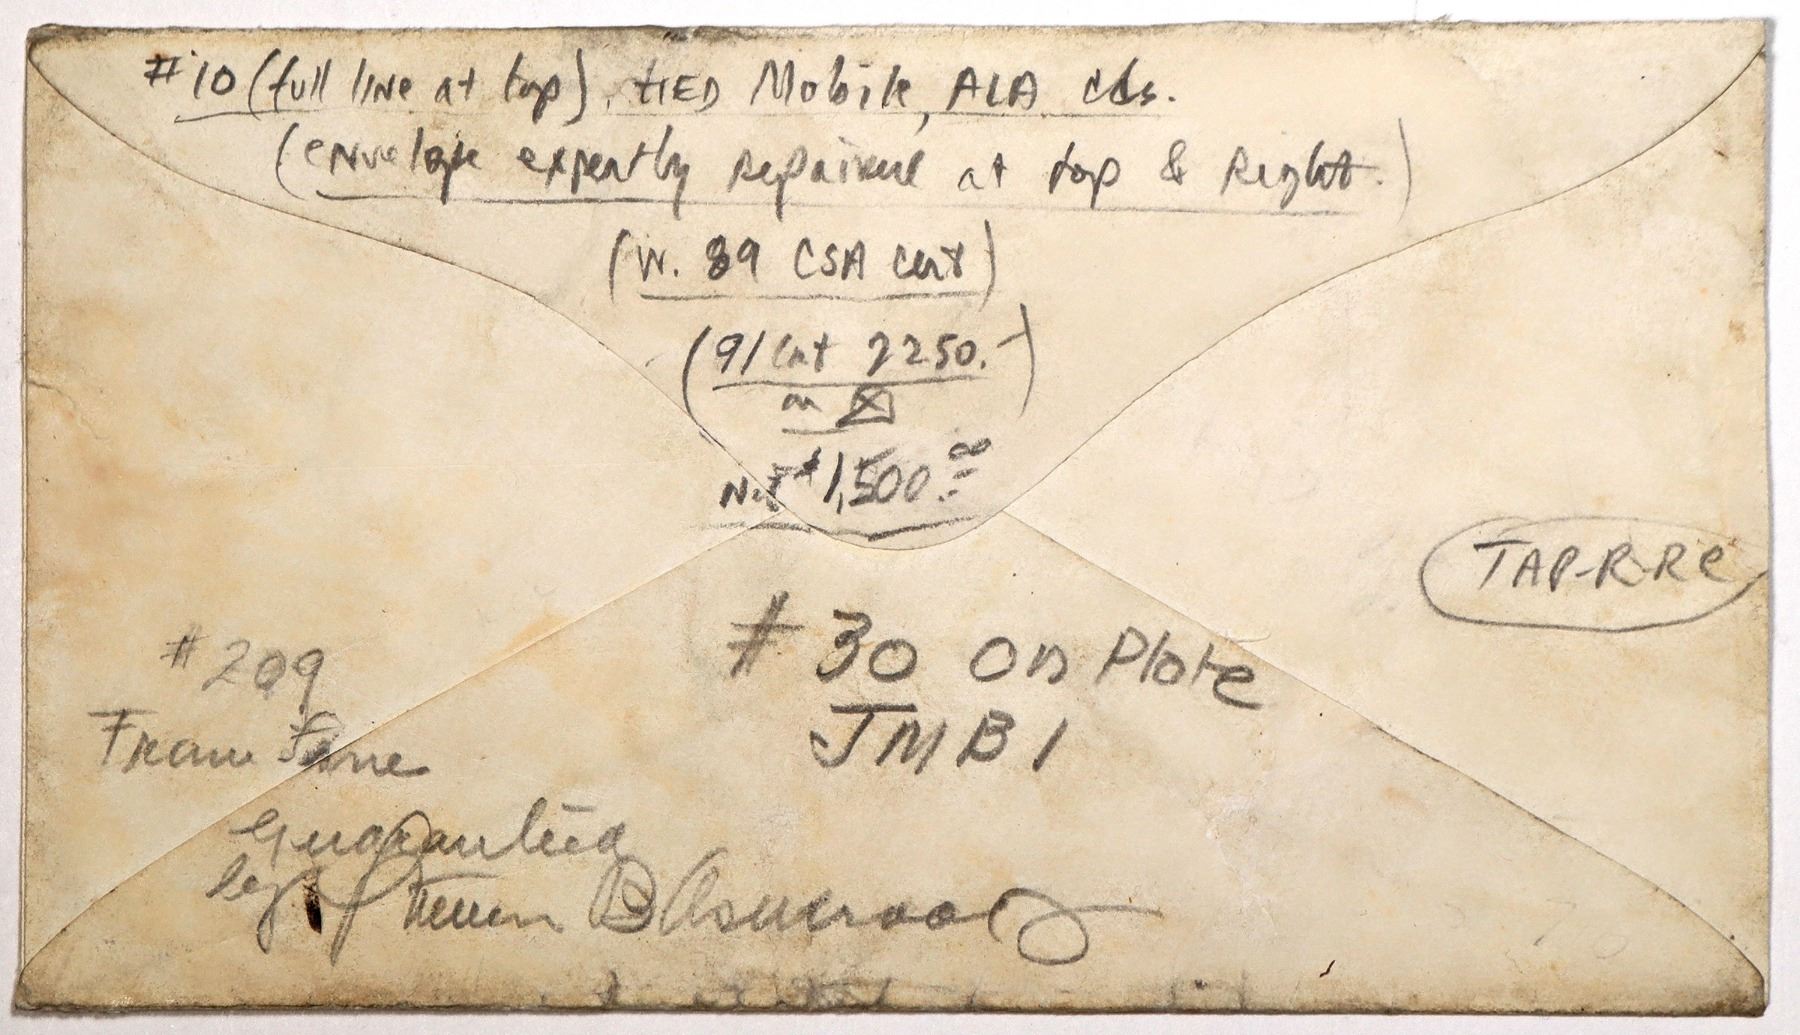 #10 (full line at top), tied Mobile, ALA cds.
(envelope expertly repaired at top & Right.)
(W. 89 CSA cert)
(91 Cat 2250.-)
on
Net $1,500.00
TAP-R-RE
#30 on Plate
JMB1
#209
From
Guaranteed
by B